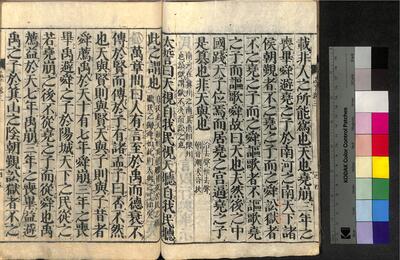 載非人之所能爲也天也堯崩三年之
喪畢舜避堯之子於南河之南天下諸
侯朝覲者不之堯之子而之舜訟獄者
不之堯之子而之舜謳歌者不謳歌堯
之子而謳歌舜故曰天也夫然後之中
國踐天子位焉而居堯之宮逼堯之子
是簒也非天與也
太誓曰天視自我民視天聽自我民聽
此之謂也
萬章問曰人有言至於禹而德衰不
傳於賢而傳於子有諸孟子曰否不然
也天與賢則與賢天與子則與子昔者
舜薦禹於天十有七年舜崩三年之喪
畢禹避舜之子於陽城天下之民從之
若堯崩之後不從堯之子而從舜也禹
薦益於天七年禹崩三年之喪畢益避
禹之子於箕山之陰朝覲訟獄者不之
KODAK Color Control Patches